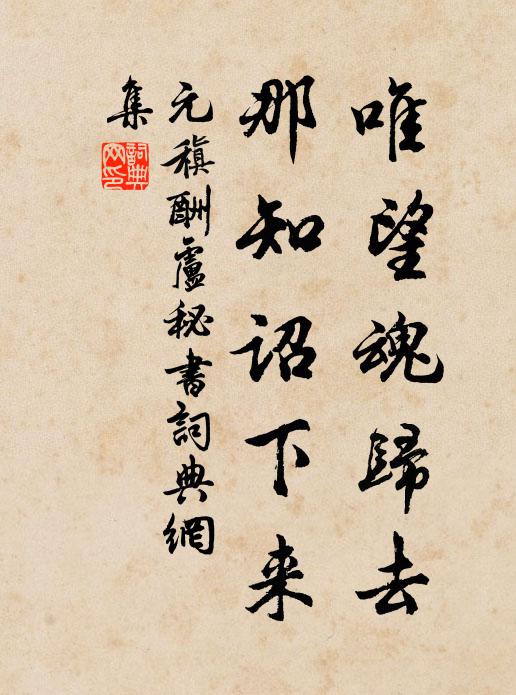 唯望魂歸去
那知詔下来
元稹酬盧秘書詞典網
集
詞典网印